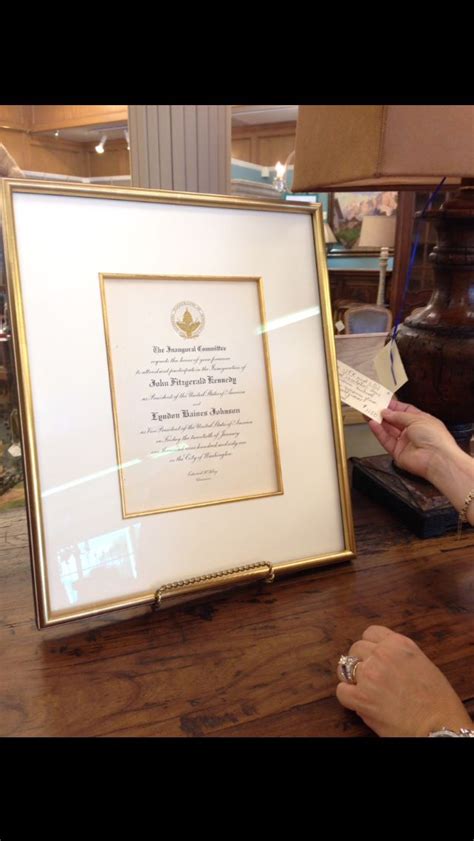 The Inaugural Committee
requests the honor of your presence
to attend and participate in the Inauguration of
John Fitzgerald Kennedy
as President of the United States of America
and
Lyndon Baines Johnson
as Vice President of the United States of America
on Friday the twentieth of January
one thousand nine hundred and sixty one
in the City of Washington
Edward H. Foley
Chairman